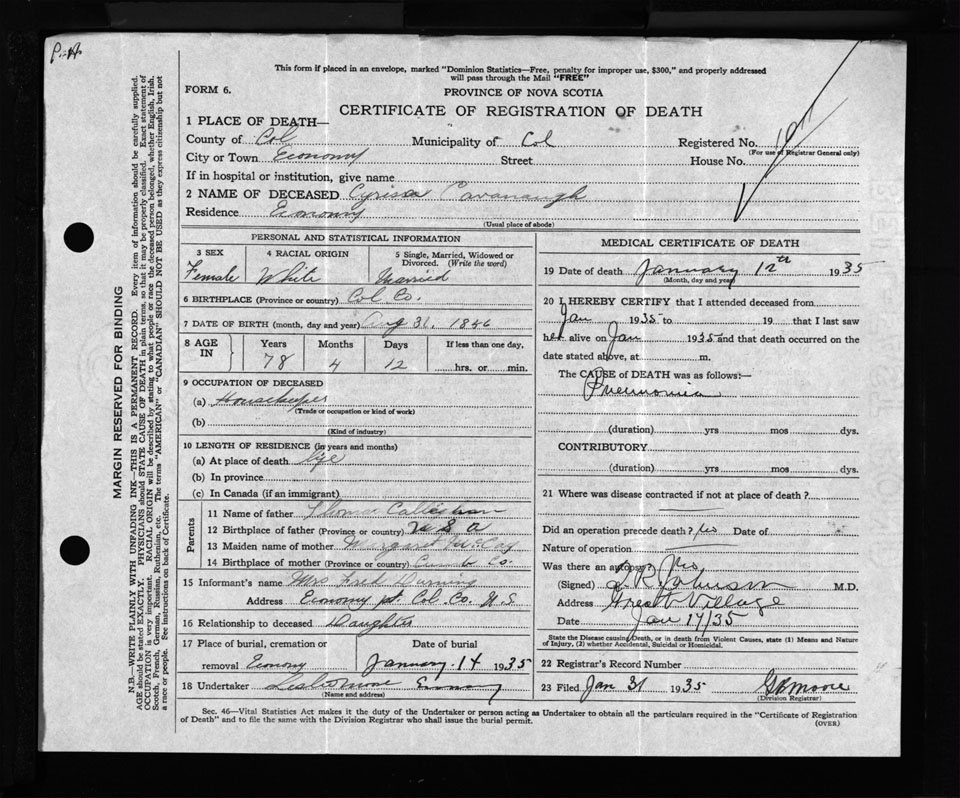 P.-H.
This form if placed in an envelope, marked "Dominion Statistics—Free, penalty for improper use, $300," and properly addressed
will pass through the Mail "FREE"
FORM 6.
PROVINCE OF NOVA SCOTIA
CERTIFICATE OF REGISTRATION OF DEATH
1 PLACE OF DEATH—
County of Col Municipality of Col Registered No.
(For use of Registrar General only)
City or Town Economy Street House No.
If in hospital or institution, give name
2 NAME OF DECEASED Cavanaugh
Residence Economy
(Usual place of abode)
PERSONAL AND STATISTICAL INFORMATION
3 SEX 4 RACIAL ORIGIN 5 Single, Married, Widowed or Divorced. (Write the word)
Female White Married
6 BIRTHPLACE (Province or country) Col Co.
7 DATE OF BIRTH (month, day and year) Aug 31, 1856
8 AGE IN Years Months Days If less than one day,
78 4 12 hrs. or min.
9 OCCUPATION OF DECEASED
(a) Housekeeper
(Trade or occupation or kind of work)
(b)
(Kind of industry)
10 LENGTH OF RESIDENCE (in years and months)
(a) At place of death Life
(b) In province
(c) In Canada (if an immigrant)
Parents
11 Name of father Callaghan
12 Birthplace of father (Province or country) U S A
13 Maiden name of mother Margaret McKay
14 Birthplace of mother (Province or country) Co.
15 Informant's name Mrs Fred
Address Economy pt. Col. Co. N.S
16 Relationship to deceased Daughter
17 Place of burial, cremation or Date of burial
removal Economy January 14 1935
18 Undertaker Moore Economy
(Name and address)
MEDICAL CERTIFICATE OF DEATH
19 Date of death January 12th 1935
(Month, day and year)
20 I HEREBY CERTIFY that I attended deceased from
Jan 1935 to 19 that I last saw
her alive on Jan 1935 and that death occurred on the
date stated above, at m.
The CAUSE OF DEATH was as follows:—
Pneumonia
(duration) yrs mos dys.
CONTRIBUTORY
(duration) yrs mos dys.
21 Where was disease contracted if not at place of death?
Did an operation precede death? No Date of
Nature of operation
Was there an autopsy? No
(Signed) Johnson M.D.
Address Great Village
Date Jan 14/35
State the Disease causing Death, or in death from Violent Causes, state (1) Means and Nature
of Injury, (2) whether Accidental, Suicidal or Homicidal.
22 Registrar's Record Number
23 Filed Jan 31 1935 Moore
(Division Registrar)
Sec. 46—Vital Statistics Act makes it the duty of the Undertaker or person acting as Undertaker to obtain all the particulars required in the "Certificate of Registration
of Death" and to file the same with the Division Registrar who shall issue the burial permit.
(OVER)
MARGIN RESERVED FOR BINDING
N.B.—WRITE PLAINLY WITH UNFADING INK—THIS IS A PERMANENT RECORD. Every item of information should be carefully supplied.
AGE should be stated EXACTLY. PHYSICIANS should STATE CAUSE OF DEATH in plain terms, so that it may be properly classified. Exact statement of
OCCUPATION is very important. RACIAL ORIGIN will be described by stating to what people or race the deceased person belonged, whether English, Irish,
Scotch, French, German, Russian, Ruthenian, etc. The terms "AMERICAN" or "CANADIAN" SHOULD NOT BE USED as they express citizenship but not
a race or people. See instructions on back of Certificate.